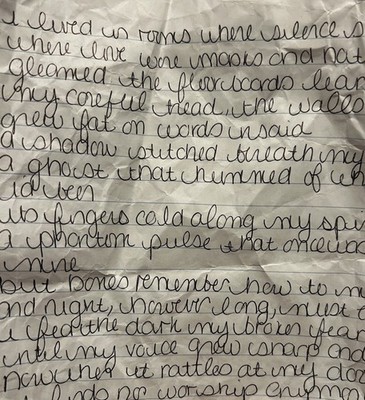 I lived in rooms where silence s
where love wore masks and hat
gleamed the floorboards lear
my careful tread, the walls
grew fat on words unsaid
a shadow stitched breath my
a ghost that hummed of wh
id been
its fingers cold along my spi
a phantom pulse that once was
mine
but bones remember how to m
and night, however long, must
i fed the dark my broken year
until my voice grew sharp and
now when it rattles at my doo
finds no worship anymor